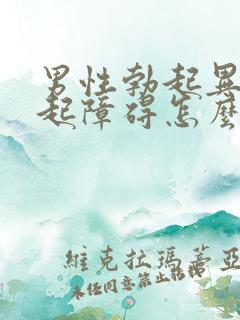 男性勃起異
起障碍怎麽
維克拉瑪蓋亞
未经同意禁止转授